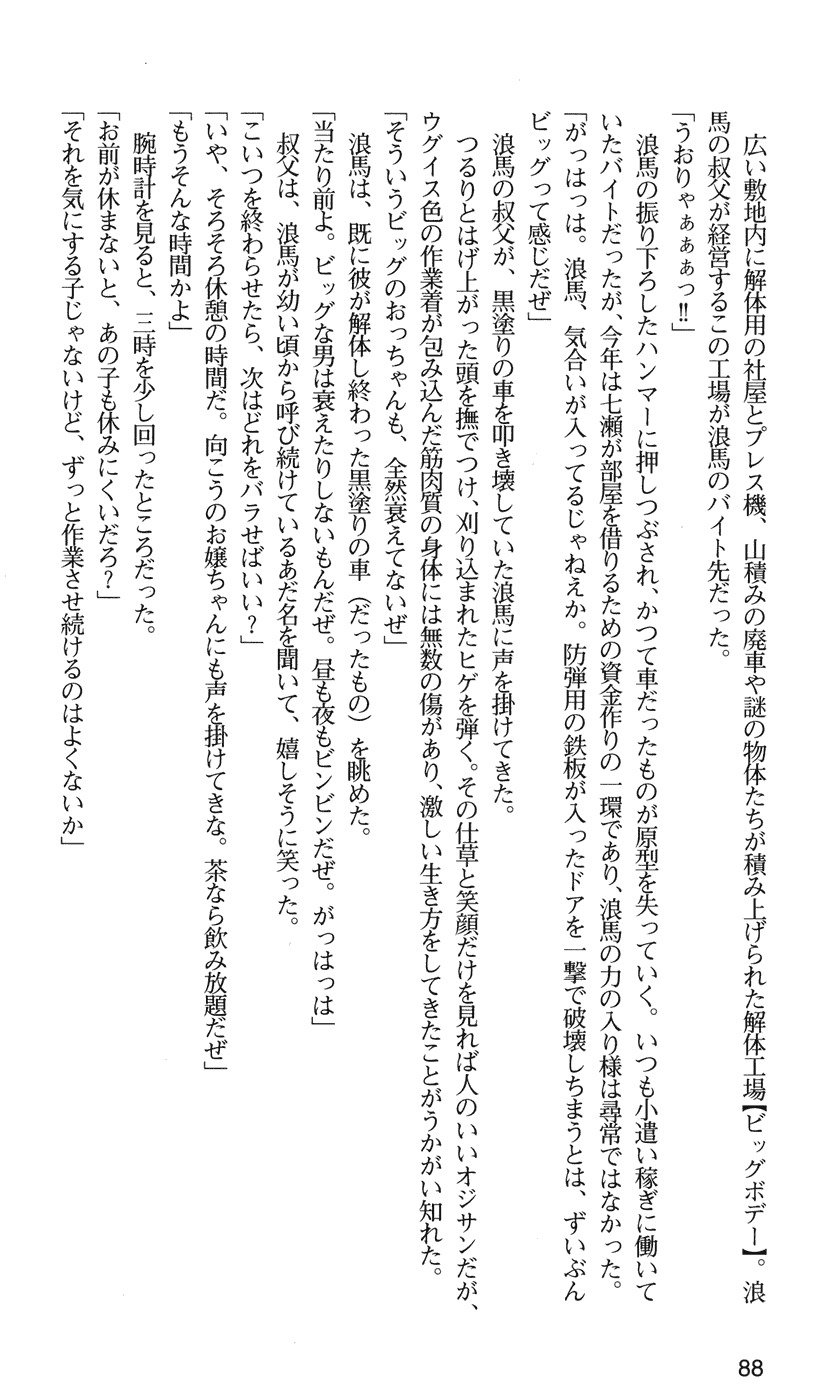 広い敷地内に解体用の社屋とプレス機、山積みの廃車や謎の物体たちが積み上げられた解体工場【ビッグボデー】。浪
馬の叔父が経営するこの工場が浪馬のバイト先だった。
「うおりゃぁぁぁっ!!」
浪馬の振り下ろしたハンマーに押しつぶされ、かつて車だったものが原型を失っていく。いつも小遣い稼ぎに働いて
いたバイトだったが、今年は七瀬が部屋を借りるための資金作りの一環であり、浪馬の力の入り様は尋常ではなかった。
「がっはっは。浪馬、気合いが入ってるじゃねえか。防弾用の鉄板が入ったドアを一撃で破壊しちまうとは、ずいぶん
ビッグって感じだぜ」
浪馬の叔父が、黒塗りの車を叩き壊していた浪馬に声を掛けてきた。
つるりとはげ上がった頭を撫でつけ、刈り込まれたヒゲを弾く。その仕草と笑顔だけを見れば人のいいオジサンだが、
ウグイス色の作業着が包み込んだ筋肉質の身体には無数の傷があり、激しい生き方をしてきたことがうかがい知れた。
「そういうビッグのおっちゃんも、全然衰えてないぜ」
浪馬は、既に彼が解体し終わった黒塗りの車（だったもの）を眺めた。
「当たり前よ。ビッグな男は衰えたりしないもんだぜ。昼も夜もビンビンだぜ。がっはっは」
叔父は、浪馬が幼い頃から呼び続けているあだ名を聞いて、嬉しそうに笑った。
「こいつを終わらせたら、次はどれをバラせばいい？」
「いや、そろそろ休憩の時間だ。向こうのお嬢ちゃんにも声を掛けてきな。茶なら飲み放題だぜ」
「もうそんな時間かよ」
腕時計を見ると、三時を少し回ったところだった。
「お前が休まないと、あの子も休みにくいだろ？」
「それを気にする子じゃないけど、ずっと作業させ続けるのはよくないか」
88